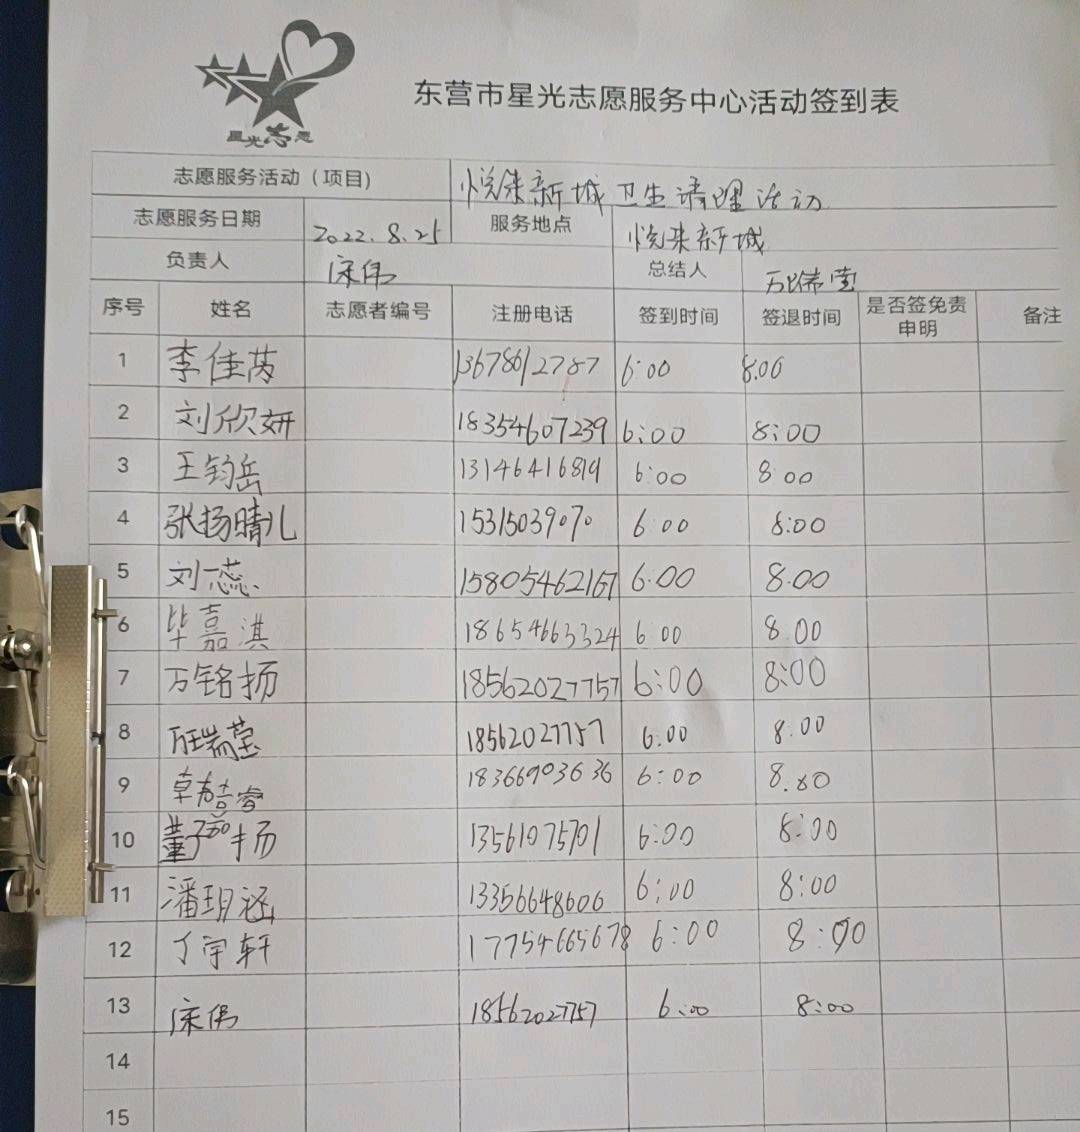 星光志愿
东营市星光志愿服务中心活动签到表
志愿服务活动（项目） 悦来新城卫生清理活动
志愿服务日期 2022.8.25 服务地点 悦来新城
负责人 宋伟 总结人 万瑞莹
序号 姓名 志愿者编号 注册电话 签到时间 签退时间 是否签免责申明 备注
1 李佳芮 13678612787 6:00 8:00
2 刘欣妍 18354607239 6:00 8:00
3 王钧岳 13146416819 6:00 8 00
4 张扬晴儿 15315039070 6:00 8:00
5 刘一蕊 15805462167 6:00 8:00
6 毕嘉淇 18654663324 6 00 8.00
7 万铭扬 18562027757 6:00 8:00
8 万瑞莹 18562027757 6:00 8.00
9 卓 睿 18366903636 6:00 8.00
10 董 扬 13561075701 6:00 8:00
11 潘玥涵 13356648606 6:00 8:00
12 丁宇轩 17754665678 6:00 8:00
13 宋伟 18562027757 6:00 8:00
14
15